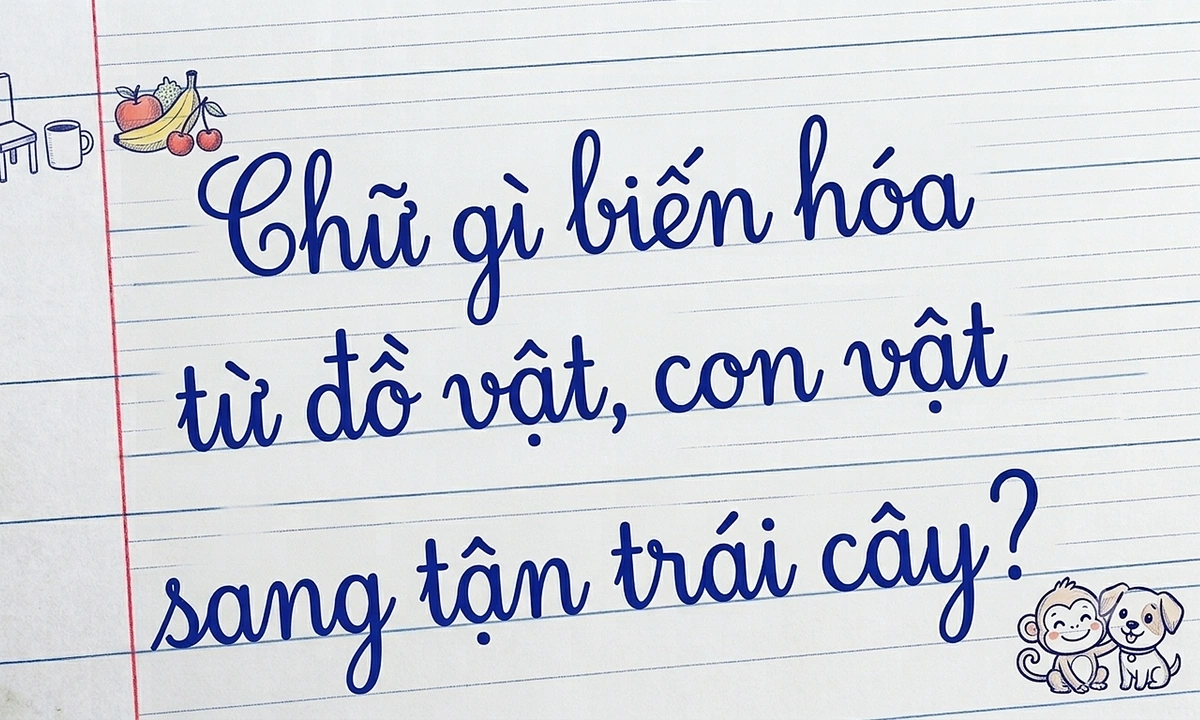 Chữ gì biến hóa
từ đồ vật, con vật
sang tận trái cây?